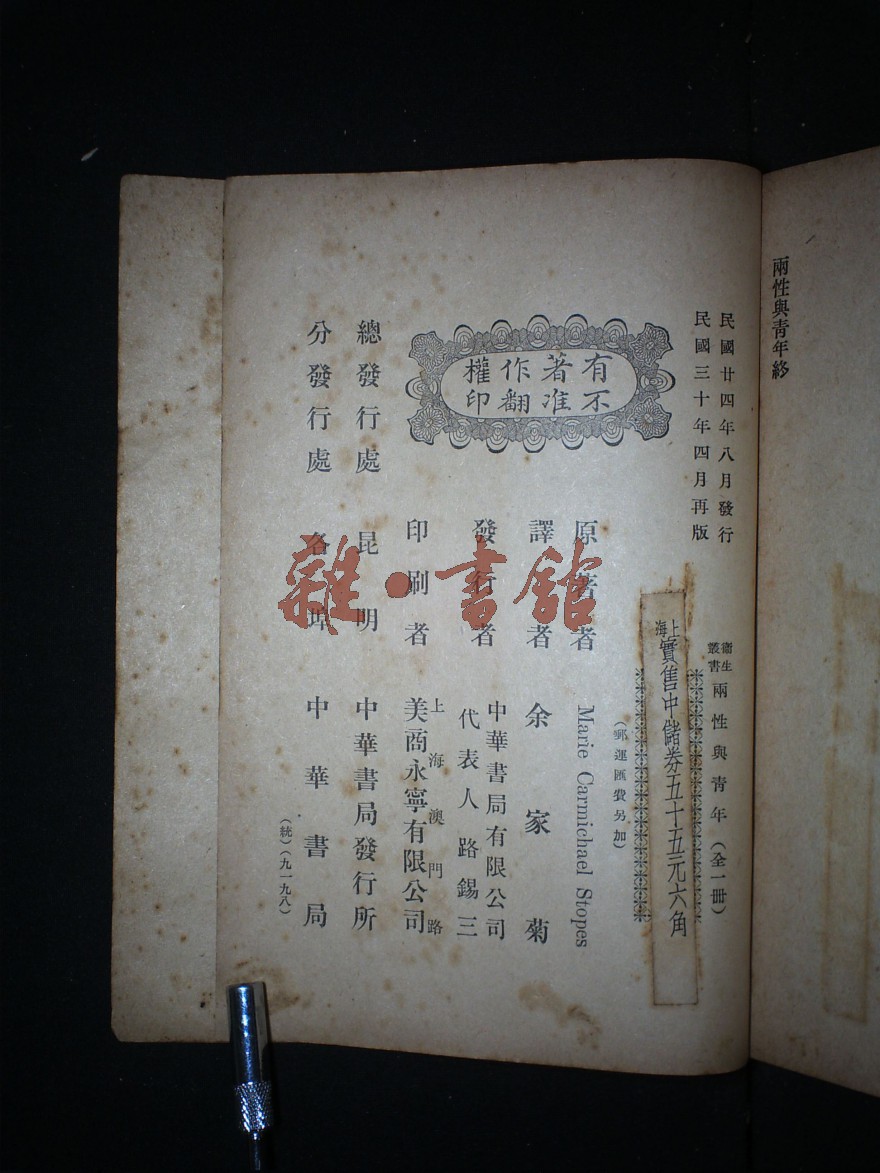 兩性與青年終
民國廿四年八月發行
民國三十年四月再版
衞生
叢書
兩性與青年（全一冊）
上海
實售中儲券五十五元六角
（郵運匯費另加）
有著作權
不准翻印
原著者 Marie Carmichael Stopes
譯者 余家菊
發行者 中華書局有限公司
代表人 路錫三
印刷者 上海澳門路
美商永寧有限公司
總發行處 昆明 中華書局發行所
分發行處 各埠 中華書局
（統）（九一九八）
雜·書館